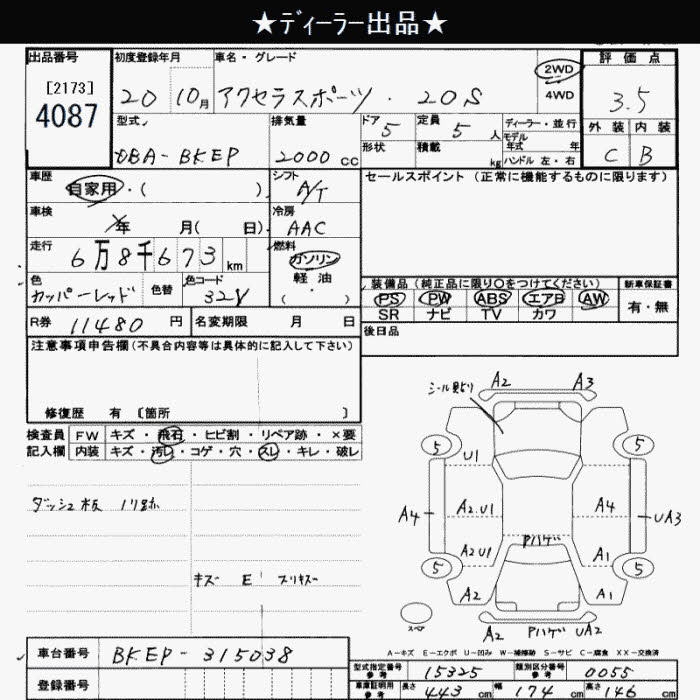 ★ディーラー出品★
出品番号
[2173]
4087
初度登録年月
20 10月
車名・グレード
アクセラスポーツ・20S
2WD
4WD
評価点
3.5
外装 内装
C B
型式
DBA-BKEP
排気量
2000 cc
ドア 5
形状
定員 5 人
積載 kg
ディーラー・並行
モデル
年式 年
ハンドル 左・右
車歴
自家用・( )
シフト
A/T
セールスポイント (正常に機能するものに限ります)
車検
年 月( 日)
冷房
AAC
走行
6万8千673 km
燃料
ガソリン
軽油
( )
色
カッパーレッド
色替
色コード
32V
装備品 (純正品に限り○をつけてください)
PS PW ABS エアB AW
SR ナビ TV カワ
新車保証書
有・無
R券 11480 円
名変期限 月 日
後日品
注意事項申告欄(不具合内容等は具体的に記入して下さい)
修復歴 有 〔箇所 〕
検査員
記入欄
FW キズ・飛石・ヒビ割・リペア跡・×要
内装 キズ・汚レ・コゲ・穴・スレ・キレ・破レ
ダッシュ板 ノリ跡
キズ E
シール貼り
A2 A3
5 5
U1
A4 A2.U1 A4 UA3
A2U1 Pハゲ A1
5 5
A2 A1
スペア
A2 Pハゲ UA2
A-キズ E-エクボ U-凹み W-補修跡 S-サビ C-腐食 XX-交換済
車台番号 BKEP-315038
登録番号
型式指定番号 参考 15325
類別区分番号 参考 0055
車庫証明用 参考 長さ 443 cm 幅 174 cm 高さ 146 cm